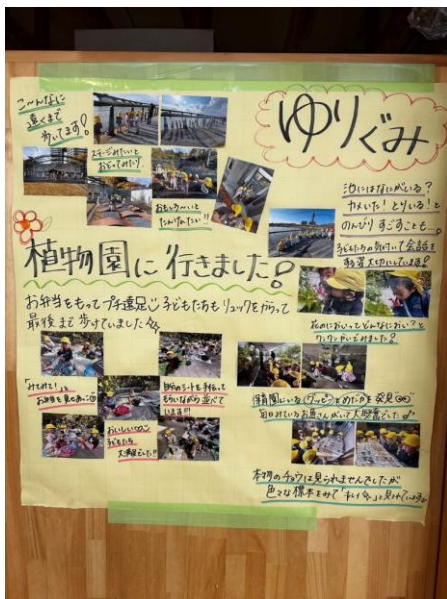 こ〜んなに
遠くまで
歩いてます!
ゆりぐみ
ステージみたいと
おどってみたり
おもしろ〜いと
たんけんたい!!
池にはなにがいる?
カメいた!とりいる!と
のんびりすごすことも…
子どもたちの気付いて会話を
大切にしています!
植物園に行きました!
お弁当をもってプチ遠足 子どもたちも リュックをがって
最後まで歩けていました
花のにおいってどんなにおい?と
クンクンかいでみました?
「みてみて!」と
お弁当を見せあいっこ
自分のシートを手伝って
もらいながら並べて
います!!!
おいしい
子どもたち
大満足でした!!
保育園にいるグッピーとめだかを発見
毎日みているお魚さんがいて大興奮でした
本物のチョウは見られませんでしたが
色々な標本をみて「キレイ」と見とれていました